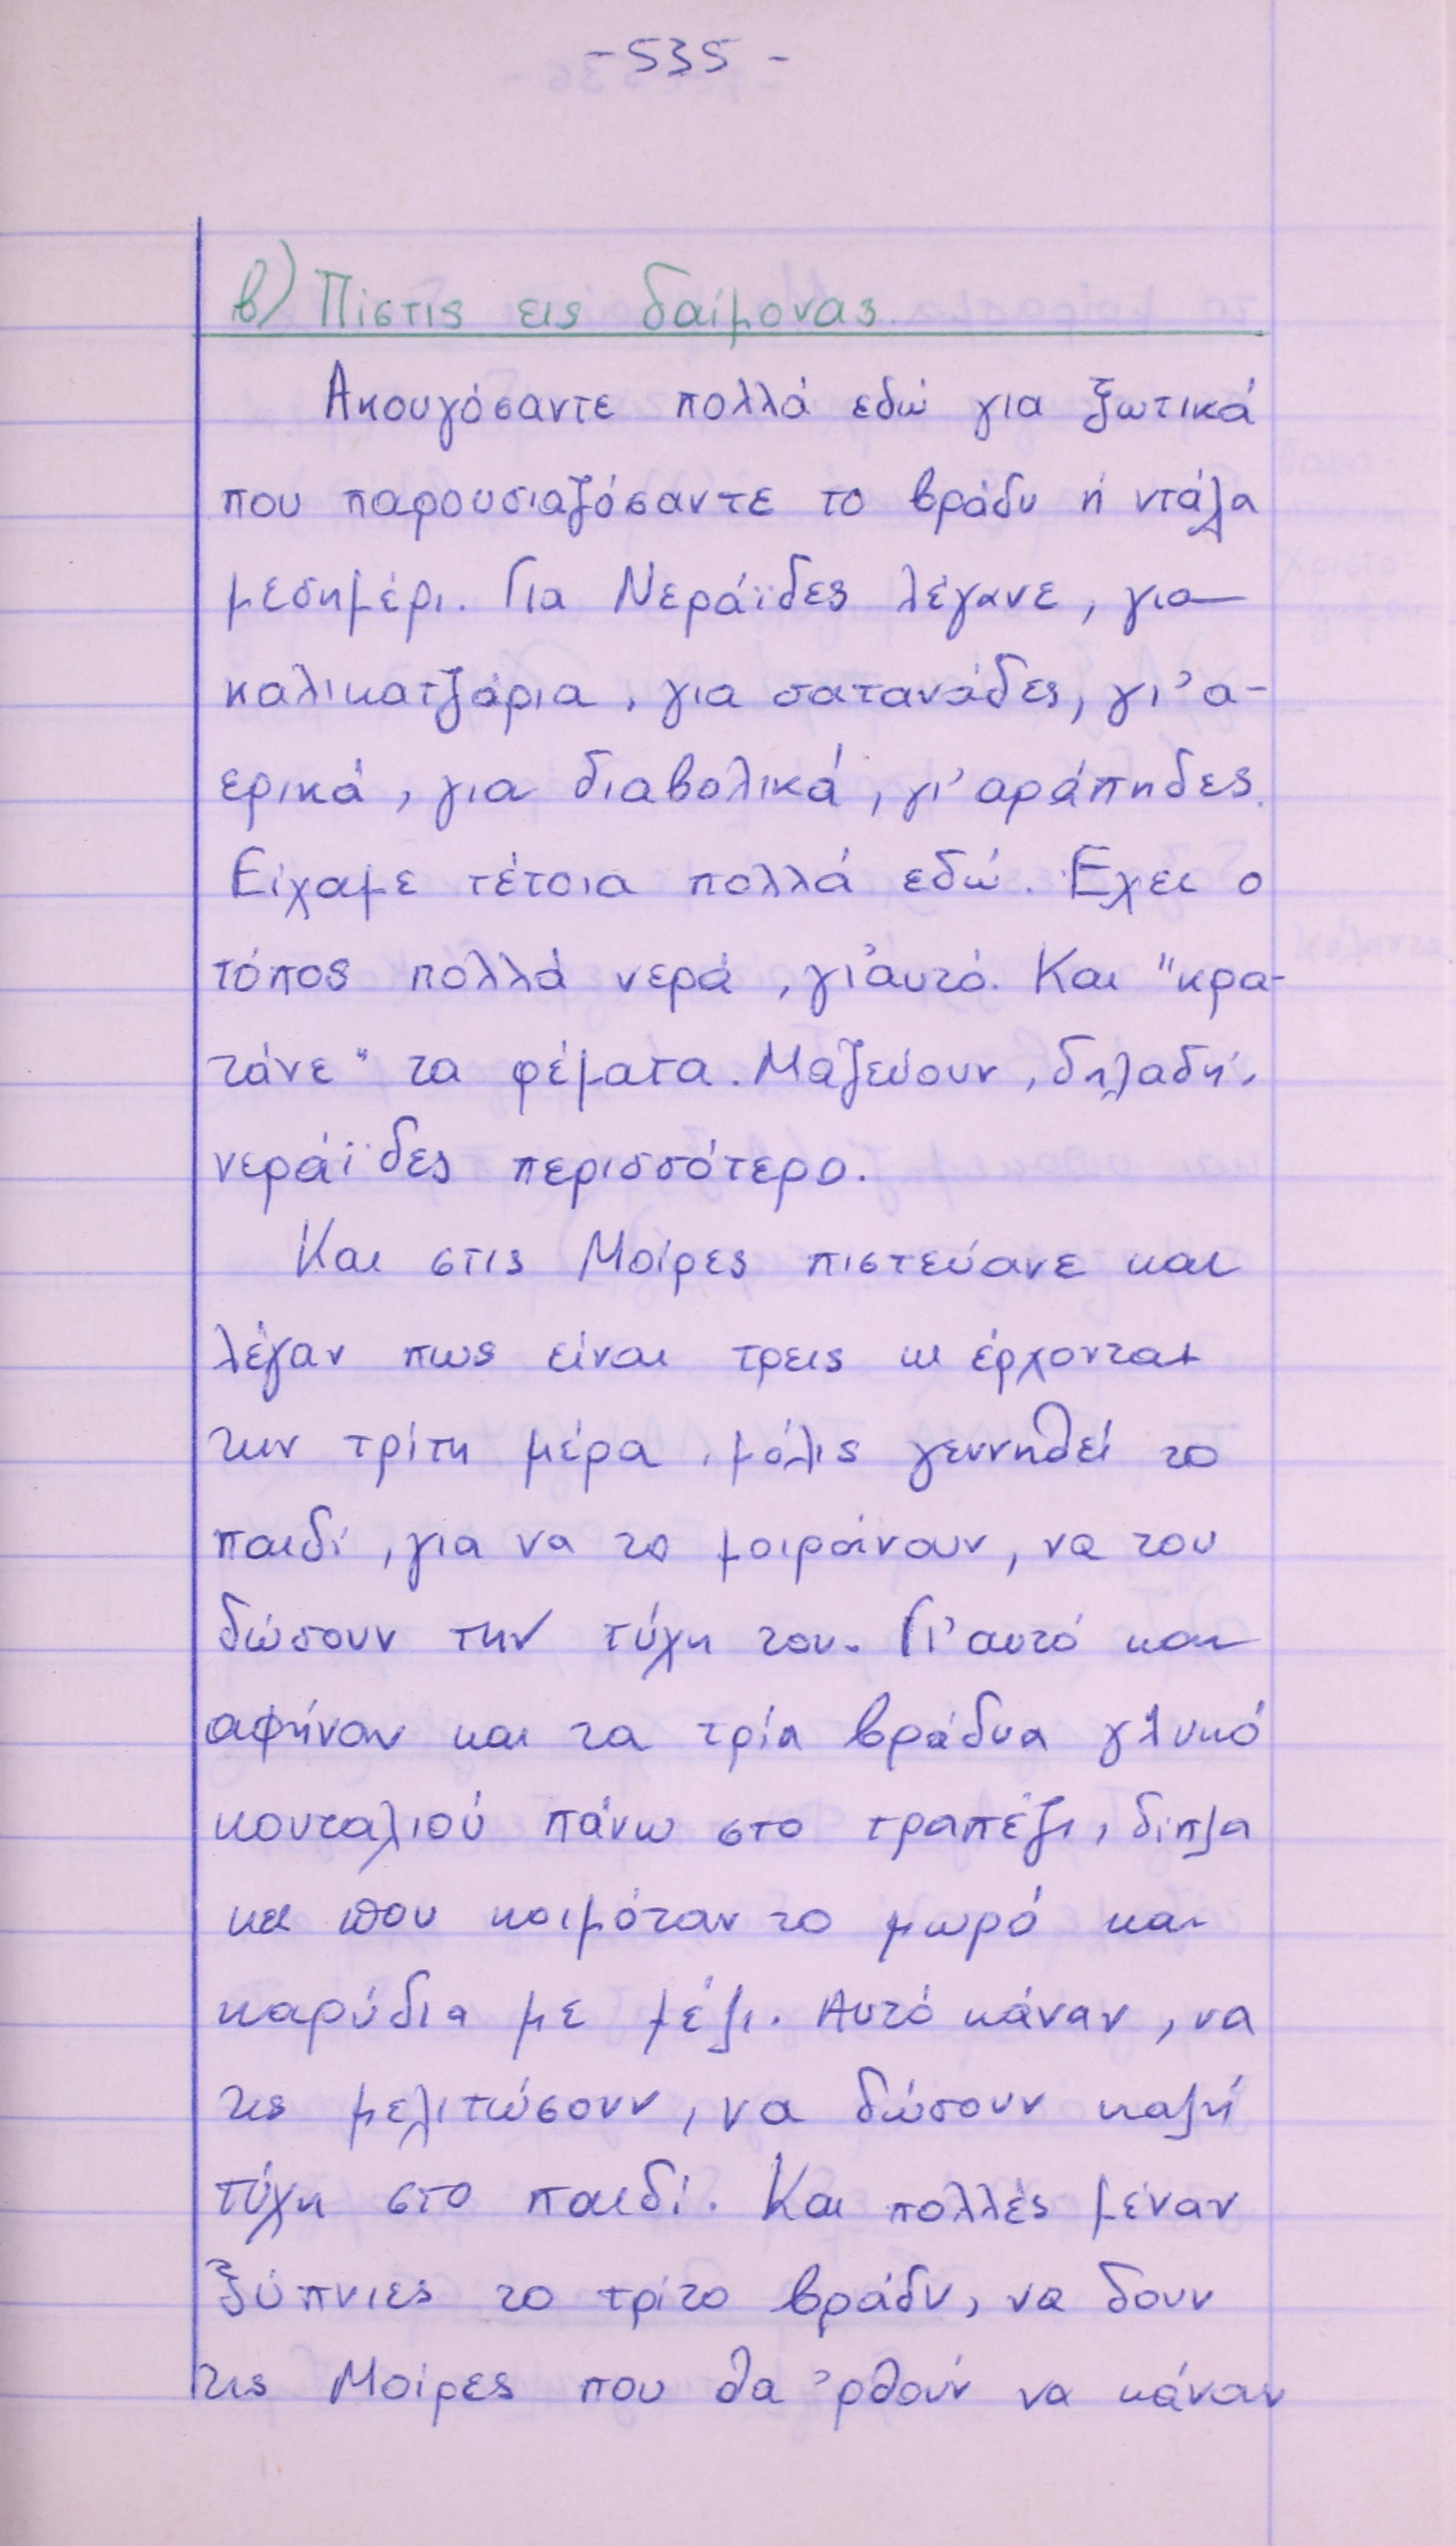 -535-
β) Πίστις εις δαίμονας
Ακουγόσαντε πολλά εδώ για ξωτικά
που παρουσιαζόσαντε το βράδυ ή ντάλα
μεσημέρι. Για Νεράϊδες λέγανε, για
καλικατζάρια, για σατανάδες, γι' α-
ερικά, για διαβολικά, γι' αράπηδες.
Είχαμε τέτοια πολλά εδώ. Έχει ο
τόπος πολλά νερά, γι' αυτό. Και "κρα-
τάνε" τα ρέματα. Μαζεύουν, δηλαδή,
νεράϊδες περισσότερο.
Και στις Μοίρες πιστεύανε και
λέγαν πως είναι τρεις κι έρχονται
την τρίτη μέρα, μόλις γεννηθεί το
παιδί, για να το μοιράνουν, να του
δώσουν την τύχη του. Γι' αυτό και
αφήναν και τα τρία βράδυα γλυκό
κουταλιού πάνω στο τραπέζι, δίπλα
κει που κοιμόταν το μωρό και
καρύδια με μέλι. Αυτό κάναν, να
τις μελιτώσουν, να δώσουν καλή
τύχη στο παιδί. Και πολλές μέναν
ξύπνιες το τρίτο βράδυ, να δουν
τις Μοίρες που θα 'ρθούν να κάναν